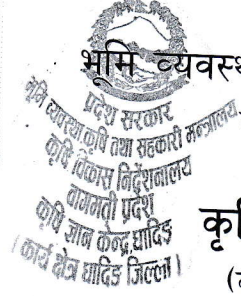 भूमि व्यवस्थ
प्रदेश सरकार
भूमि व्यवस्था कृषि तथा सहकारी मन्त्रालय
कृषि विकास निर्देशनालय
बागमती प्रदेश
कृषि ज्ञान केन्द्र, धादिङ
(कार्य क्षेत्र धादिङ जिल्ला)
कृषि